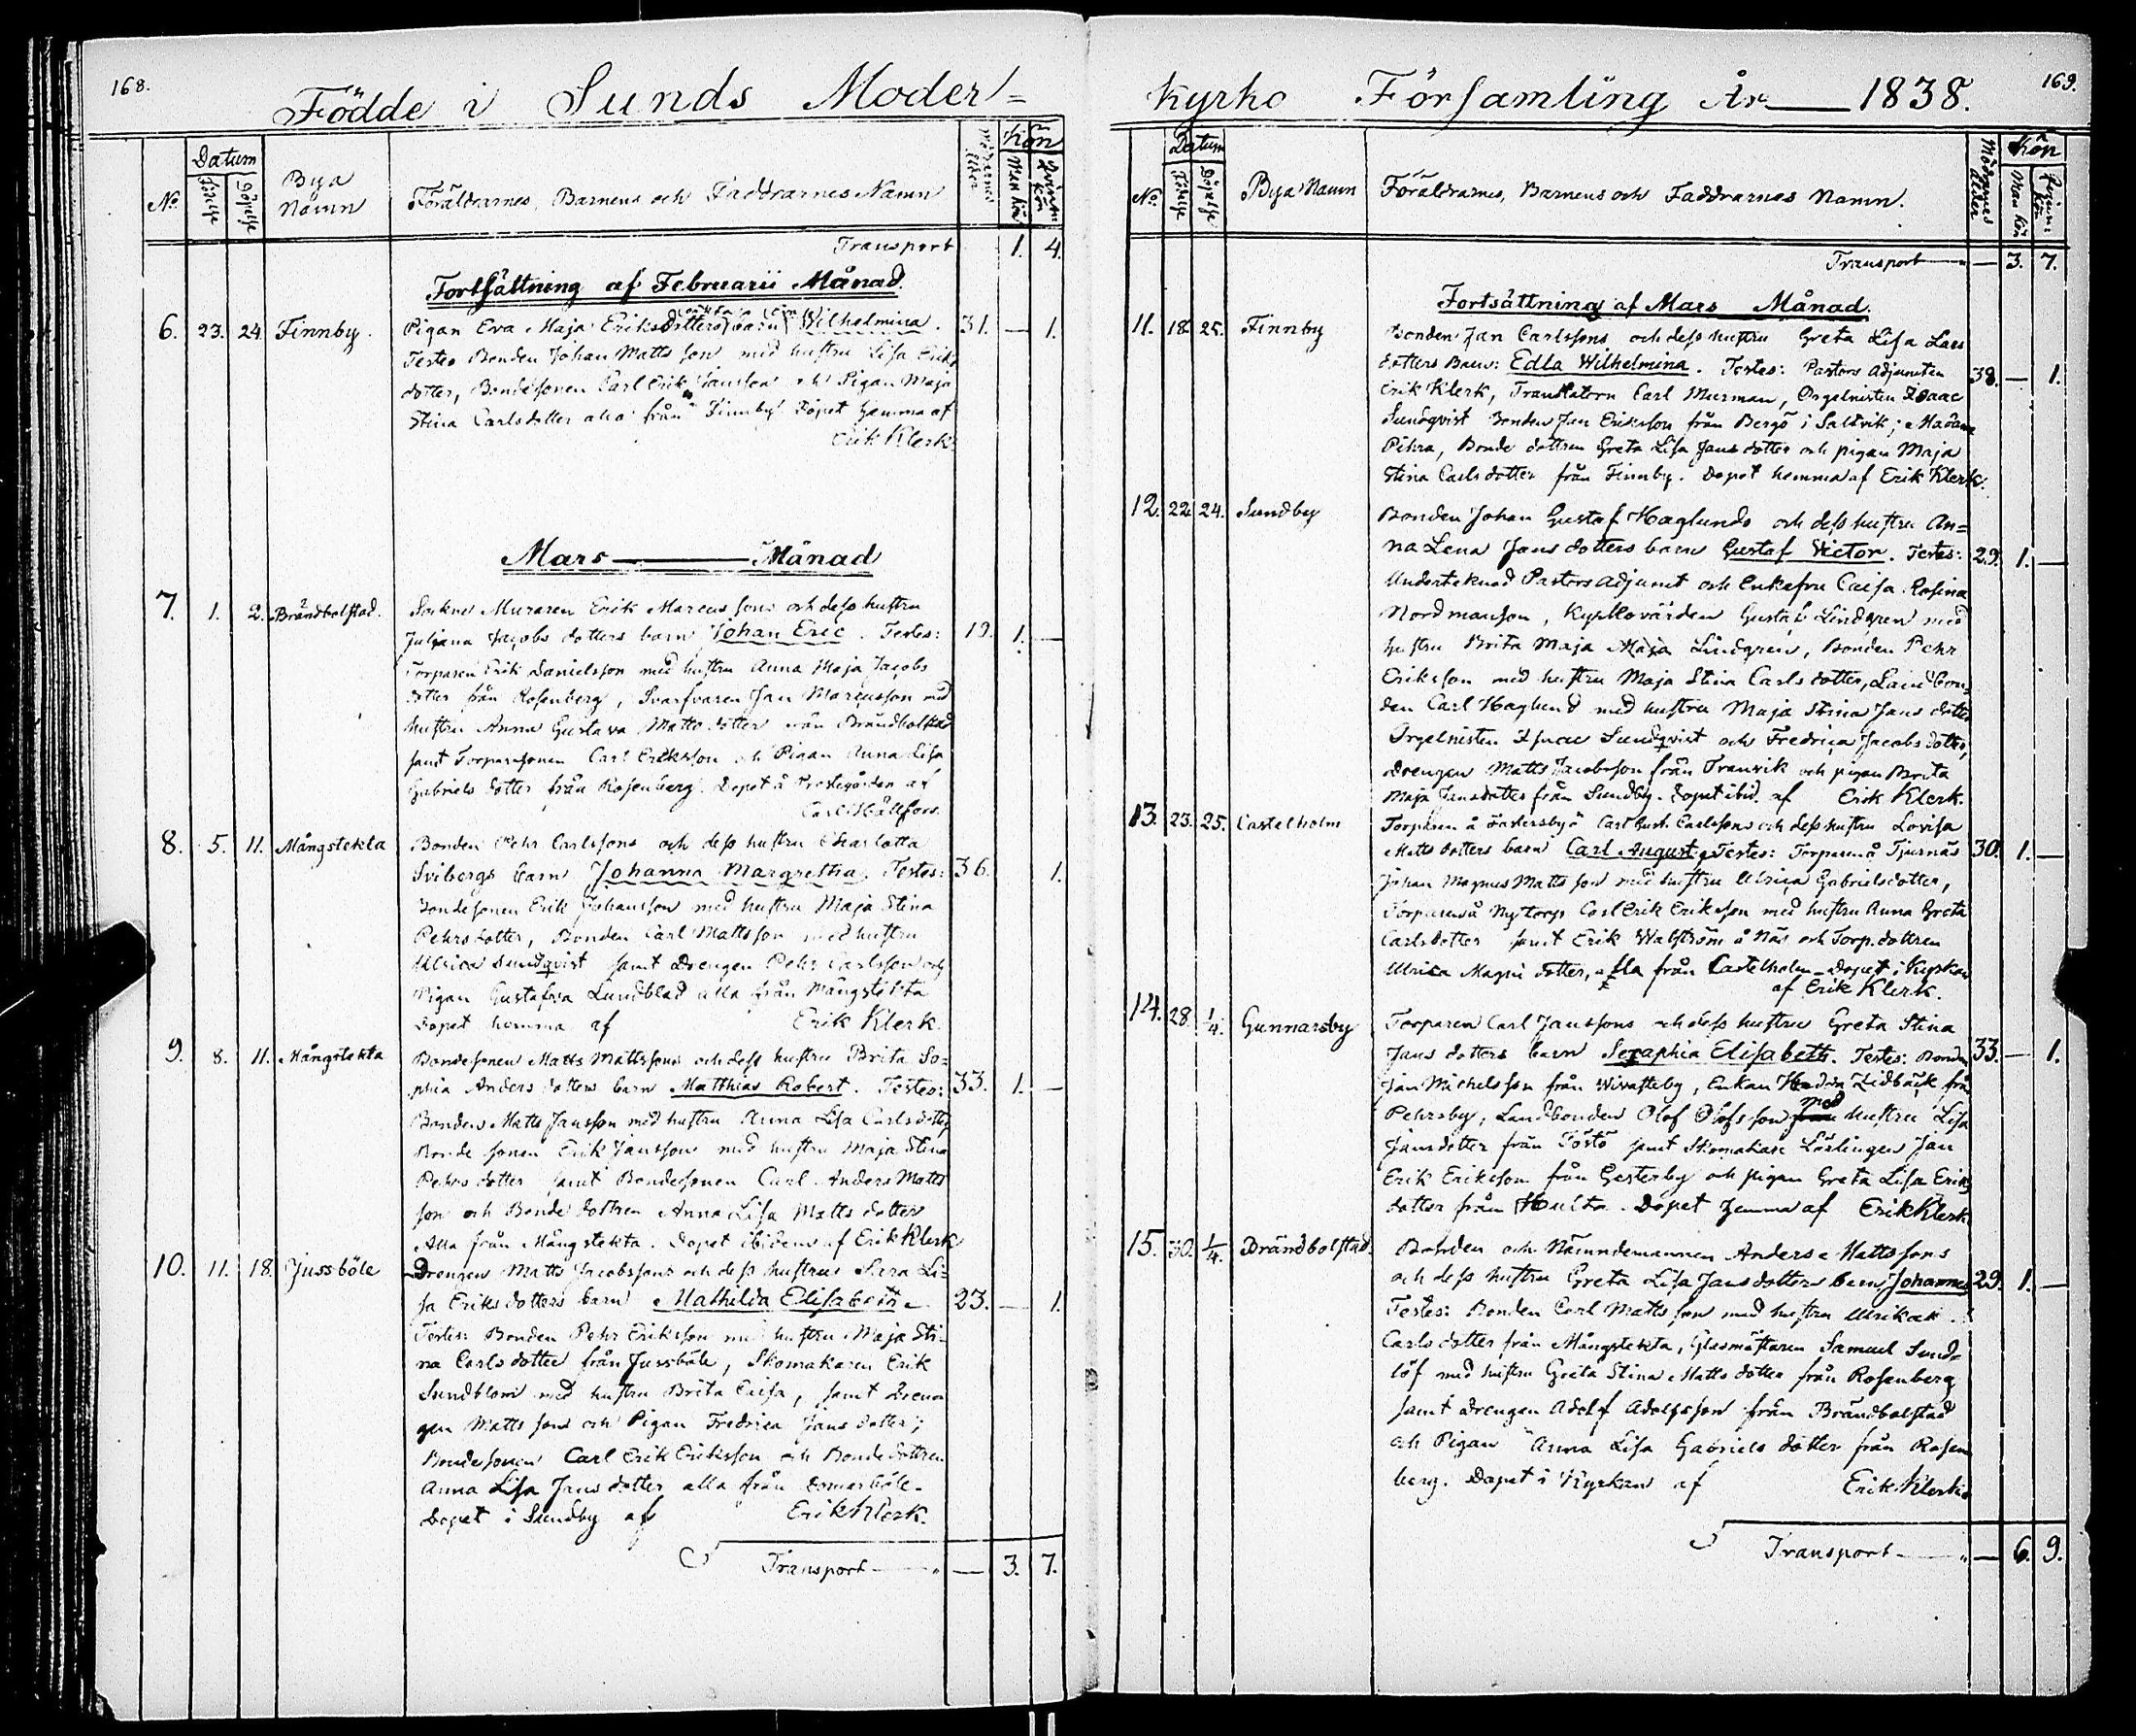 168.
Födde i Sunds Moder=
No
Datum
Födelse
Döpelse
Bya Namn
Föräldrarnes, Barnens och Faddrarnes Namn
Mödrarnes Ålder
Kön
Man kön
Qvinn kön
Transport 1. 4.
Fortsättning af Februarii Månad.
6. 23. 24 Finnby. Pigan Eva Maja Eriksdotters barn Wilhelmina. 31. — 1.
Testes Bonden Johan Mattsson med hustru Lisa Eriks
dotter, Bondesonen Carl Erik Jansson och Pigan Maja
Stina Carlsdotter alla från Finnby Döpet hemma af
Erik Klerk.
Mars — Månad
7. 1. 2. Brändbolstad. Socknes Muraren Erik Marcussons och dess hustru
Juliana Jacobs dotters barn Johan Eric. Testes: 19. 1. —
Torparen Erik Danielsson med hustru Anna Maja Jacobs
dotter från Rosenberg, Svarfvaren Jan Marcusson med
hustru Anna Gustava Matts dotter från Brändbolstad
samt Torparesonen Carl Eriksson och Pigan Anna Lisa
Gabriels dotter från Rosenberg. Döpet å Prestegården af
Carl Hållfors.
8. 5. 11. Mångstekta Bonden Pehr Carlssons och dess hustru Charlotta
Svibergs barn Johanna Margretha. Testes: 36. 1.
Bondesonen Erik Johansson med hustru Maja Stina
Pehrsdotter, Bonden Carl Mattsson med hustru
Ulrica Sundqvist samt Drengen Pehr Carlsson och
Pigan Gustafva Lundblad alla från Mångstekta
Döpet hemma af Erik Klerk.
9. 8. 11. Mångstekta Bondesonen Matts Mattssons och dess hustru Brita So=
phia Anders dotters barn Matthias Robert. Testes: 33. 1. —
Bonden Matts Jansson med hustru Anna Lisa Carlsdotter
Bonde sonen Erik Jansson med hustru Maja Stina
Pehrs dotter samt Bondesonen Carl Anders Matts
son och Bonde dottren Anna Lisa Matts dotter
Alla från Mångstekta. Döpet ibidem af Erik Klerk
10. 11. 18. Jussböle Drengen Matts Jacobssons och dess hustrus Sara Li=
sa Eriks dotters barn Mathilda Elisabeth. 23. — 1.
Testes: Bonden Pehr Eriksson med hustru Maja Sti-
na Carls dotter från Jussböle, Skomakaren Erik
Sundblom med hustru Brita Caisa, samt Dren-
gen Matts son och Pigan Fredrica Jans dotter;
Bondesonen Carl Erik Eriksson och Bonde dottren
Anna Lisa Jans dotter alla från Domarböle.
Döpet i Sundby af Erik Klerk.
Transport — 3. 7.
169.
Kyrko Församling År — 1838.
No
Datum
Födelse
Döpelse
Bya Namn
Föräldrarnes, Barnens och Faddrarnes Namn.
Mödrarnes Ålder
Kön
Man kön
Qvinn kön
Transport — 3. 7.
Fortsättning af Mars Månad.
11. 18. 25. Finnby Bonden Jan Carlssons och dess hustru Greta Lisa Lars
dotters Barn: Edla Wilhelmina. Testes: Pastors Adjuncten 38. — 1.
Erik Klerk, Translatorn Carl Murman, Orgelnisten Isaac
Sundqvist Bonden Jan Eriksson från Bergö i Saltvik; Madame
Pihra, Bonde dottren Greta Lisa Jans dotter och pigan Maja
Stina Carls dotter från Finnby. Döpet hemma af Erik Klerk.
12. 22. 24. Sundby Bonden Johan Gustaf Haglunds och dess hustru An=
na Lena Jans dotters barn Gustaf Victor. Testes: 29. 1. —
Undertecknad Pastors Adjunct och Enkefru Caisa Rosina
Nordmanson, Kyrkovärden Gustaf Lindgren med
hustru Brita Maja Lindgren, Bonden Pehr
Eriksson med hustru Maja Stina Carls dotter, Landbon=
den Carl Haglund med hustru Maja Stina Jans dotter
Orgelnisten Isaac Sundqvist och Fredrica Jacobs dotter,
Drengen Matts Jacobsson från Tranvik och pigan Brita
Maja Jansdotter från Sundby. Döpet ibid. af Erik Klerk.
13. 23. 25. Castelholm Torparen å Castersby Carl Gust. Carlssons och dess hustru Lovisa
Matts dotters barn Carl August. Testes: Torparen å Tjurnäs 30. 1. —
Johan Magnus Mattsson med hustru Ulrica Gabrielsdotter,
Torparen å Nytorp Carl Erik Eriksson med hustru Anna Greta
Carlsdotter samt Erik Walström å Näs och Torp. dottren
Ulrica Magni dotter, alla från Castelholm. Döpet i Kyrkan
af Erik Klerk.
14. 28. 1/4. Gunnarsby Torparen Carl Janssons och dess hustru Greta Stina
Jans dotters barn Seraphia Elisabeth. Testes: Bonden 33. — 1.
Jan Michelsson från Wivasteby, Enkan Hedda Lidbäck från
Pehrsby, Landbonden Olof Olofsson med hustru Lisa
Jansdotter från Tosto samt Skomakare Lärlingen Jan
Erik Eriksson från Gesterby och pigan Greta Lisa Eriks
dotter från Hulta. Döpet hemma af Erik Klerk
15. 30. 1/4. Brändbolstad. Bonden och Nämndemannen Anders Mattssons
och dess hustru Greta Lisa Jansdotters barn Johannes 29. 1. —
Testes: Bonden Carl Mattsson med hustru Ulrika
Carls dotter från Mångstekta, Glasmästaren Samuel Sund-
löf med hustru Greta Stina Matts dotter från Rosenberg
samt Drengen Adolf Adolfsson från Brändbolstad
och Pigan Anna Lisa Gabriels dotter från Rosen
berg. Döpet i Kyrkan af Erik Klerk
Transport — 6. 9.